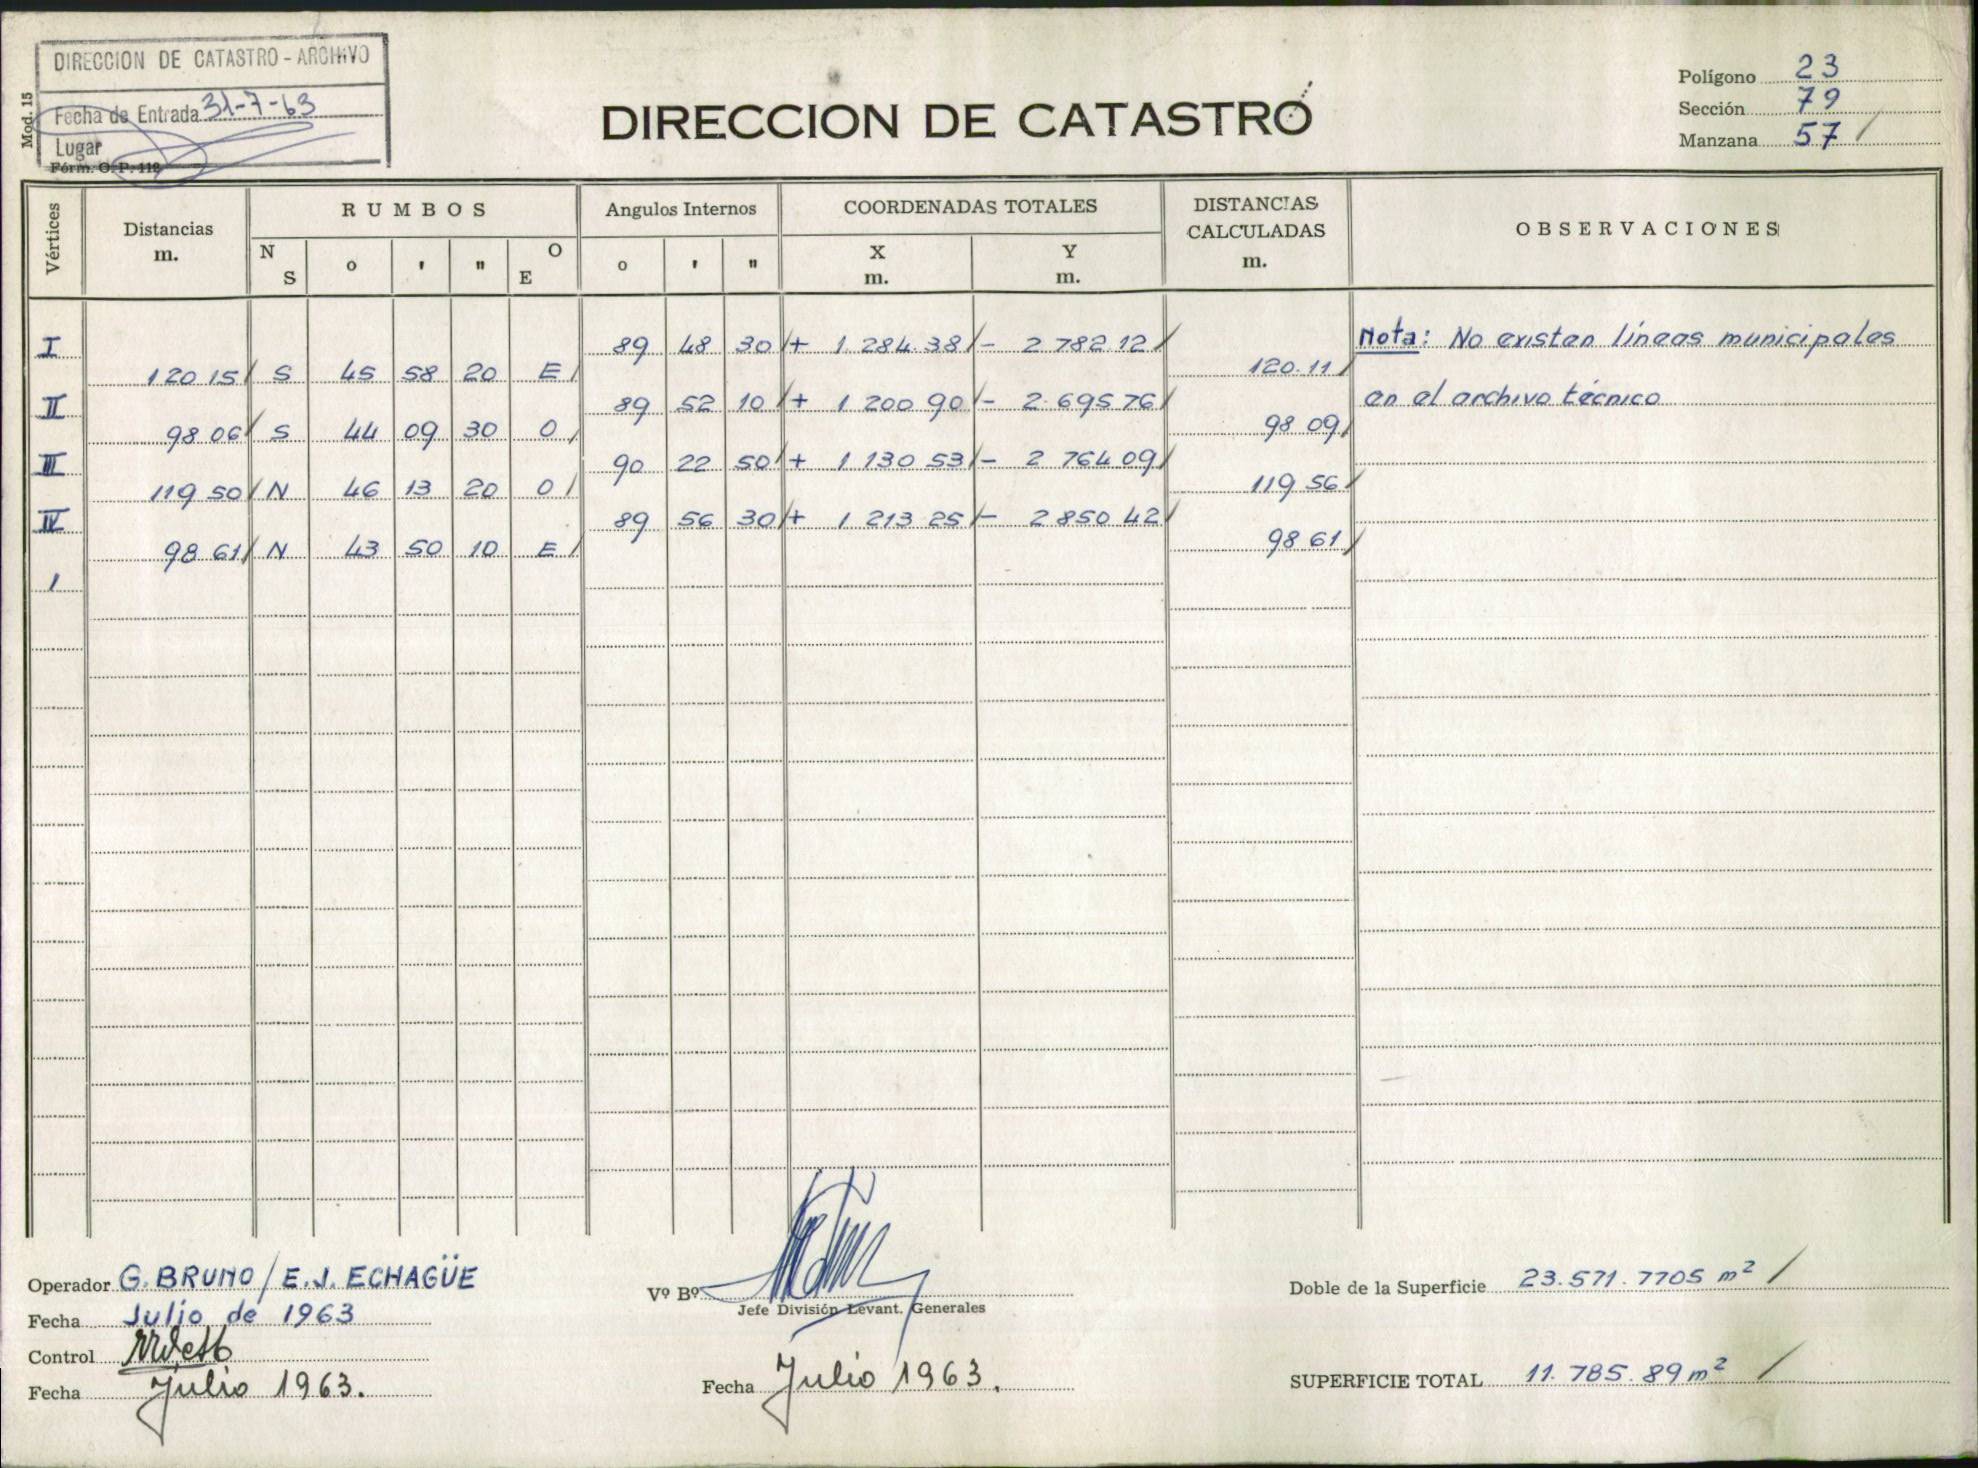 DIRECCION DE CATASTRO - ARCHIVO
Fecha de Entrada 31-7-63
Lugar
Mod. 15
Fórm. O. P. 118
DIRECCION DE CATASTRO
Polígono 23
Sección 79
Manzana 57 /
Vértices
Distancias m.
RUMBOS
N S o ' " O E
Angulos Internos
o ' "
COORDENADAS TOTALES
X m. Y m.
DISTANCIAS CALCULADAS m.
OBSERVACIONES
I 89 48 30 / + 1.284.38 / - 2 782 12 /
Nota: No existen líneas municipales
120 15 / S 45 58 20 E / 120.11 /
II 89 52 10 / + 1 200 90 / - 2.695 76 /
en el archivo técnico
98 06 / S 44 09 30 O / 98 09 /
III 90 22 50 / + 1 130 53 / - 2 764 09 /
119 50 / N 46 13 20 O / 119 56 /
IV 89 56 30 / + 1 213 25 / - 2 850 42 /
98 61 / N 43 50 10 E / 98 61 /
I
Operador G. BRUNO / E. J. ECHAGÜE
Fecha Julio de 1963
Control
Fecha Julio 1963.
Vº Bº
Jefe División Levant. Generales
Fecha Julio 1963.
Doble de la Superficie 23.571.7705 m² /
SUPERFICIE TOTAL 11.785.89 m² /